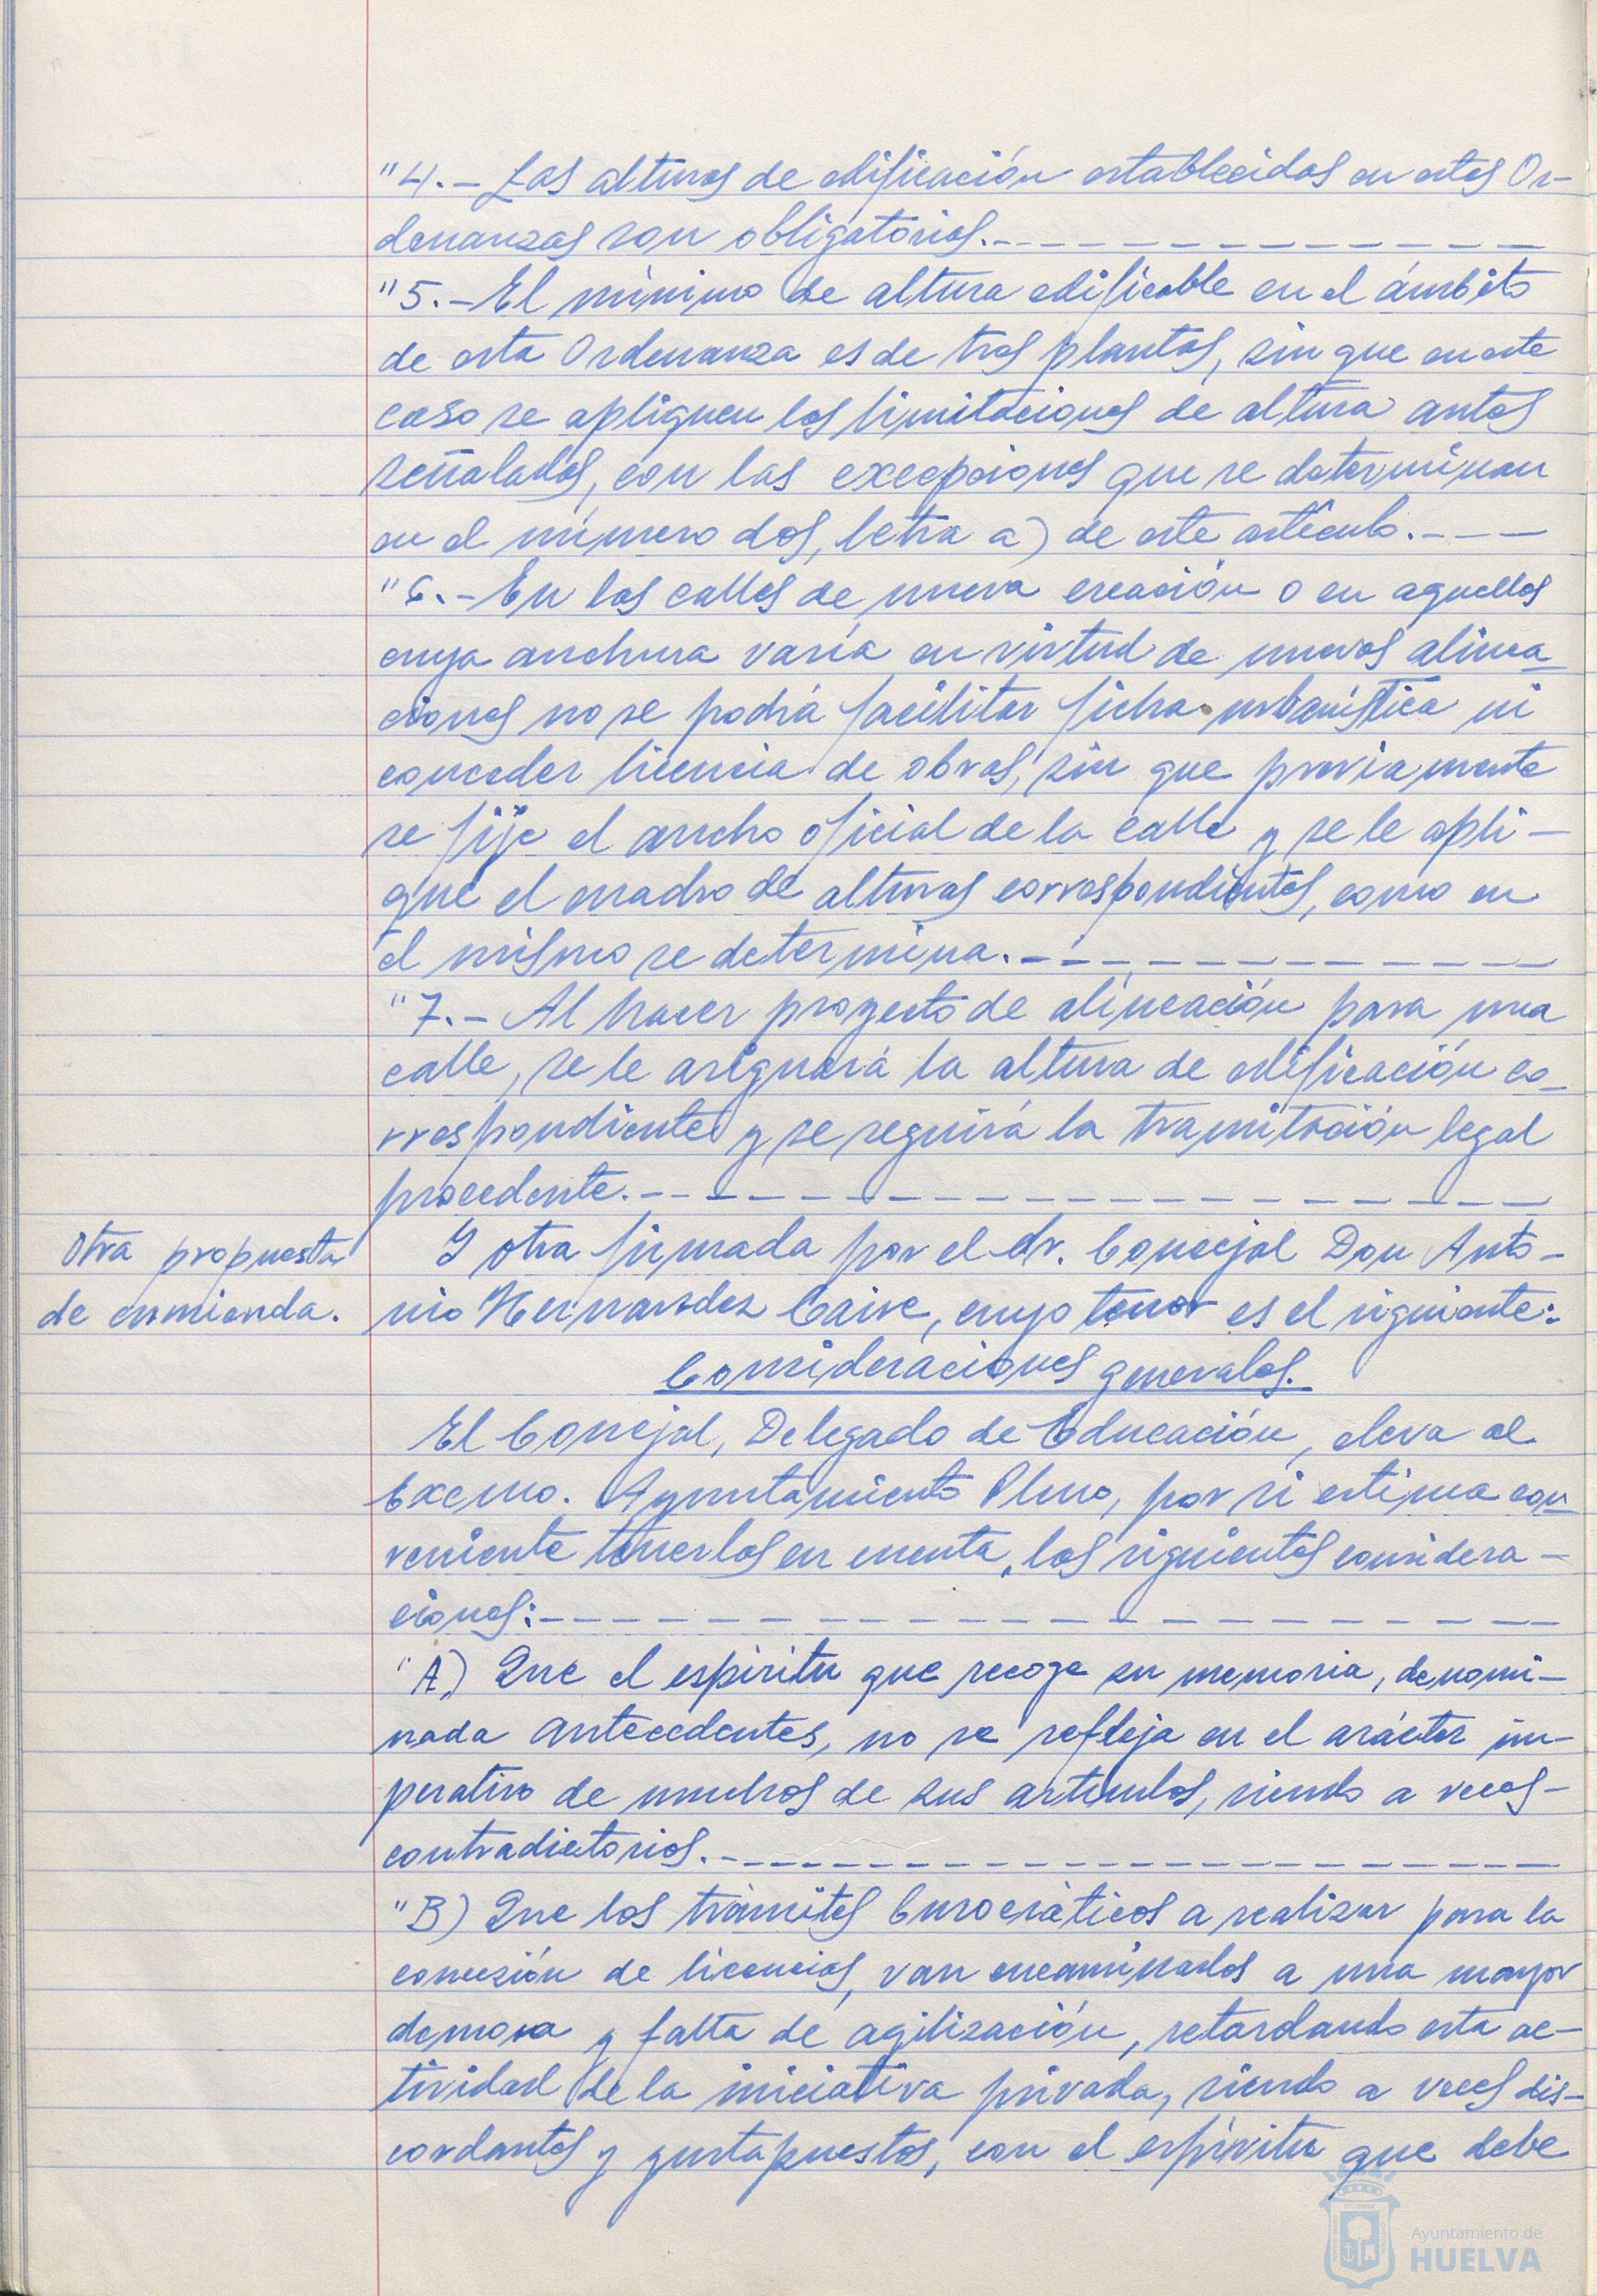 "4.- Las alturas de edificación establecidas en estas Or-
denanzas son obligatorias.-
"5.- El mínimo de altura edificable en el ámbito
de esta Ordenanza es de tres plantas, sin que en este
caso se apliquen las limitaciones de altura antes
señaladas, con las excepciones que se determinan
en el número dos, letra a) de este artículo.-
"6.- En las calles de nueva creación o en aquellas
cuya anchura varía en virtud de nuevas alinea-
ciones no se podrá facilitar ficha urbanística ni
conceder licencia de obras, sin que previamente
se fije el ancho oficial de la calle y se le apli-
que el cuadro de alturas correspondientes, como en
el mismo se determina.-
"7.- Al hacer proyecto de alineación para una
calle, se le asignará la altura de edificación co-
rrespondiente y se seguirá la tramitación legal
procedente.-
Otra propuesta
de enmienda.
Y otra firmada por el Sr. Concejal Don Anto-
nio Hernandez Caire, cuyo tenor es el siguiente:
Consideraciones generales.
El Concejal, Delegado de Educación, eleva al
Excmo. Ayuntamiento Pleno, por si estima con-
veniente tenerlas en cuenta, las siguientes considera-
ciones:-
"A) Que el espíritu que recoge su memoria, denomi-
nada antecedentes, no se refleja en el arácter im-
perativo de muchos de sus artículos, siendo a veces-
contradictorios.-
"B) Que los trámites burocráticos a realizar para la
conce­sión de licencias, van encaminados a una mayor
demora y falta de agilización, retardando esta ac-
tividad de la iniciativa privada, siendo a veces dis-
cordantes y yustapuestos, con el espíritu que debe
Ayuntamiento de
HUELVA